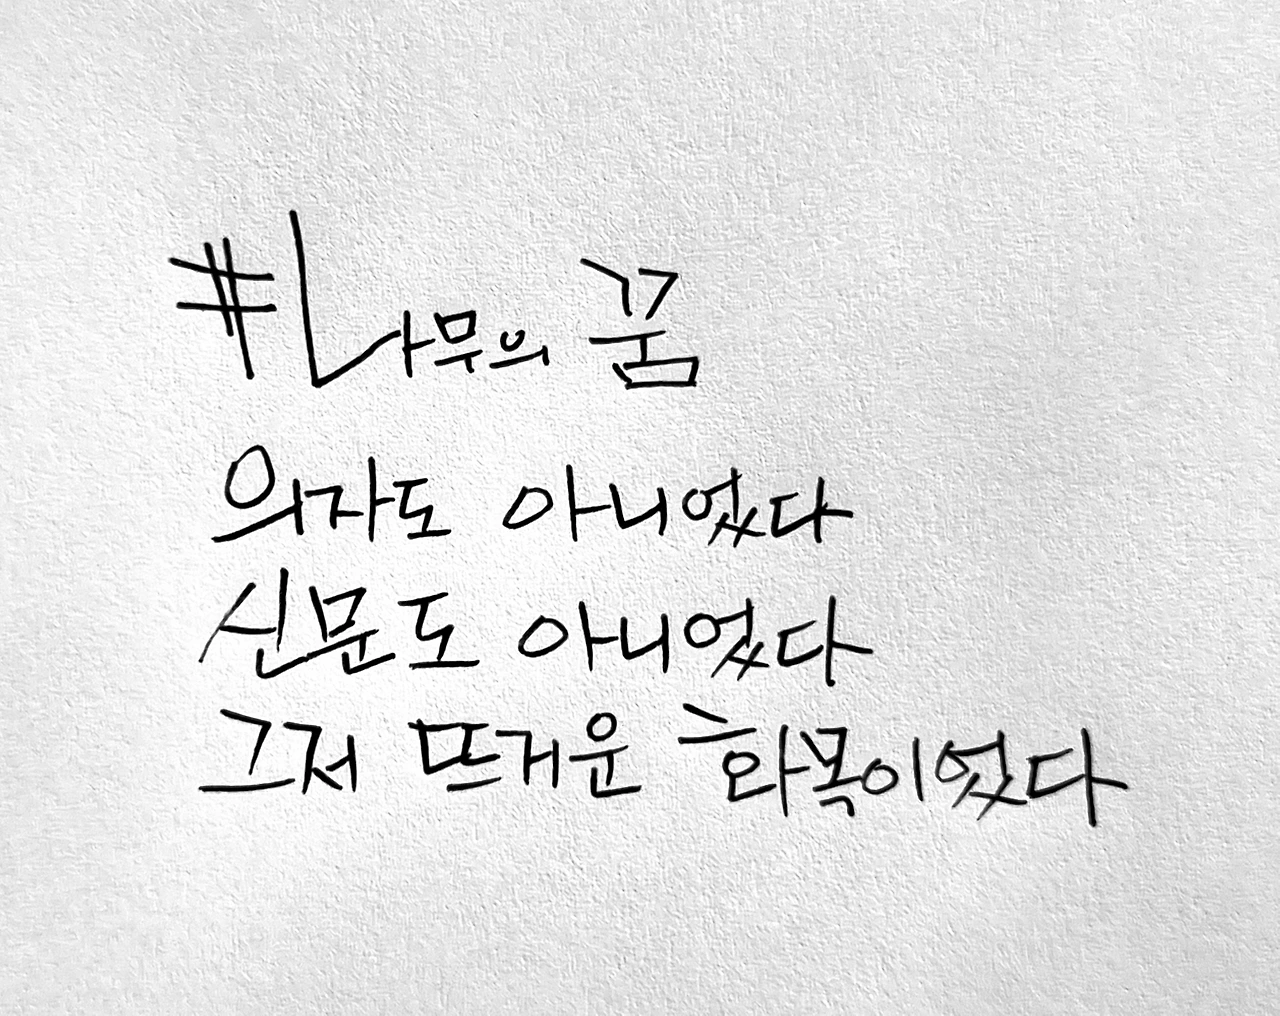 #나무의 꿈
의자도 아니었다
신문도 아니었다
그저 뜨거운 화목이었다